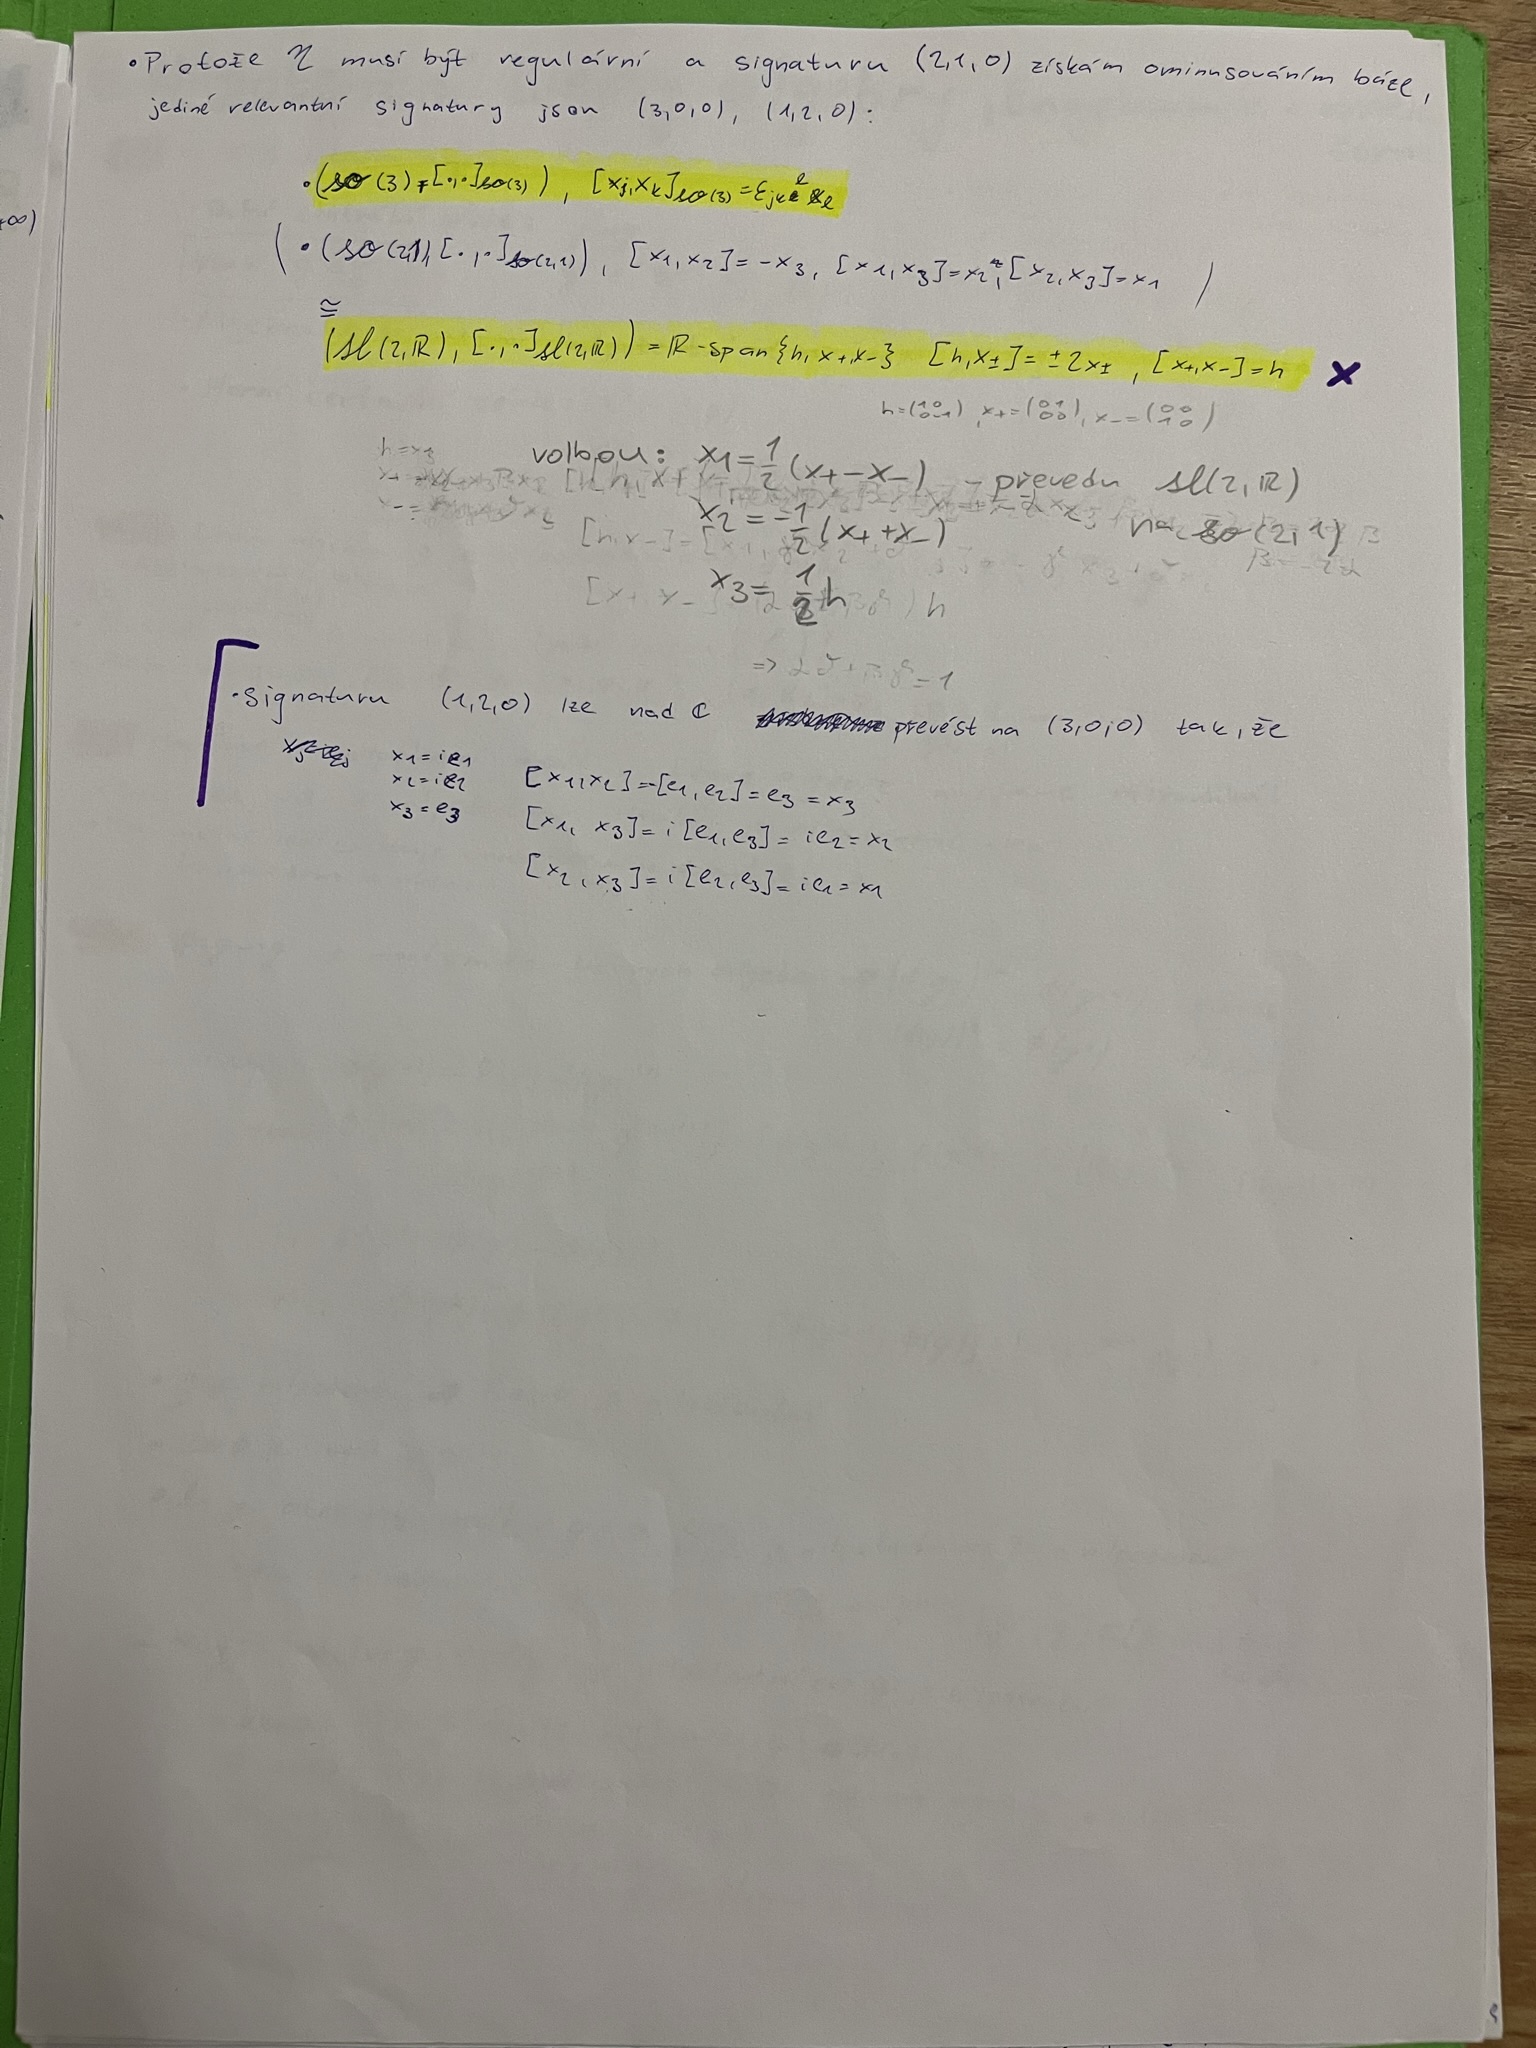 +∞)
• Protože η musí být regulární a signaturu (2,1,0) získám ominusováním báze,
jediné relevantní signatury jsou (3,0,0), (1,2,0):
• (so(3), [·,·]so(3)), [xj,xk]so(3) = εjk^l xl
( • (so(2,1), [·,·]so(2,1)), [x1,x2]=-x3, [x1,x3]=x2, [x2,x3]=x1 )
≅
(sl(2,ℝ), [·,·]sl(2,ℝ)) = ℝ-span{h,x+,x-} [h,x±]= ±2x±, [x+,x-]=h x
h=(1 0 0 -1), x+=(0 1 0 0), x-=(0 0 1 0)
h=x3
volbou: x1=1/2(x+-x-) - převedu sl(2,ℝ)
x2=-1/2(x++x-) na so(2,1)
x3=1/2h
• signaturu (1,2,0) lze nad ℂ převést na (3,0,0) tak, že
x1=ie1
x2=ie2
x3=e3
[x1,x2]=-[e1,e2]=e3=x3
[x1,x3]=i[e1,e3]=ie2=x2
[x2,x3]=i[e2,e3]=ie1=x1